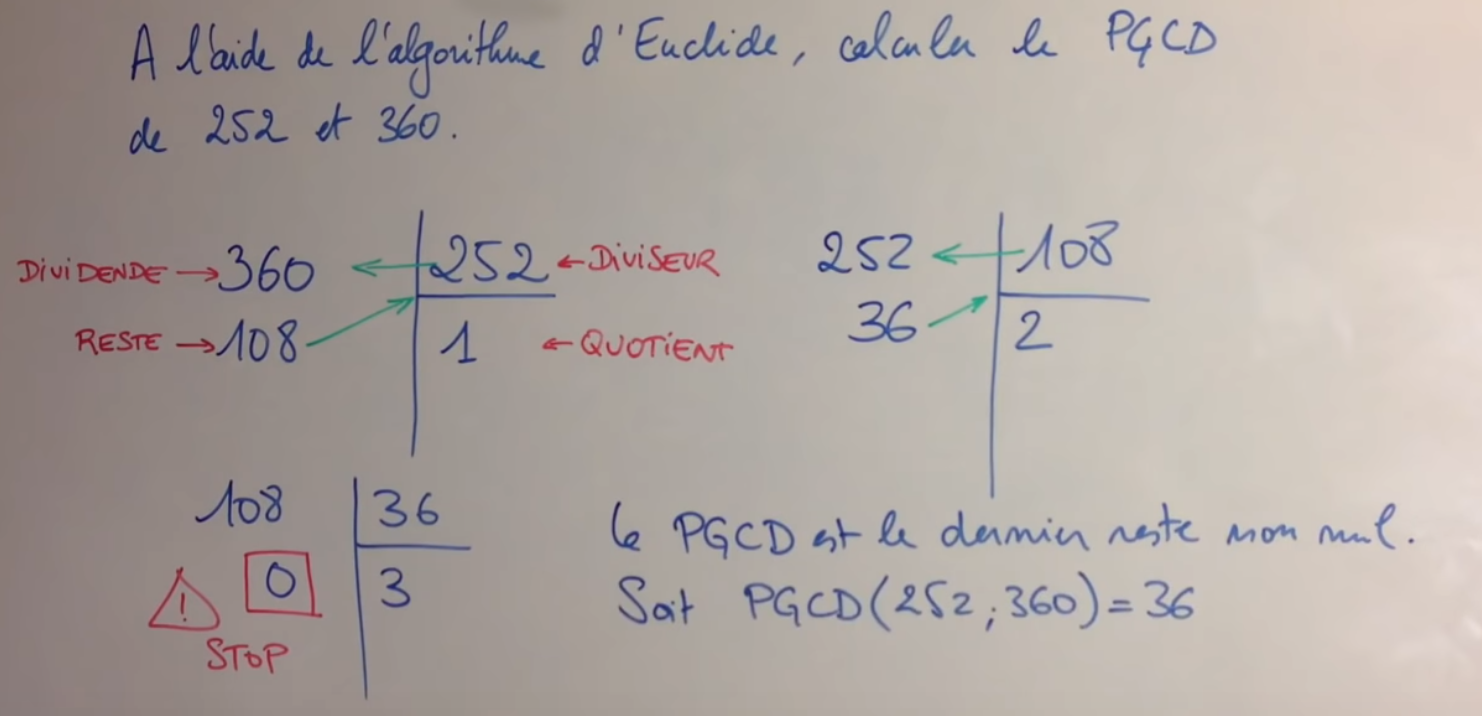 A l'aide de l'algorithme d'Euclide, calculer le PGCD
de 252 et 360.
DIVIDENDE → 360 ← 252 ← DIVISEUR
RESTE → 108 1 ← QUOTIENT
252 ← 108
36 2
108 36
0 3
! STOP
Le PGCD est le dernier reste non nul.
Soit PGCD(252;360)=36